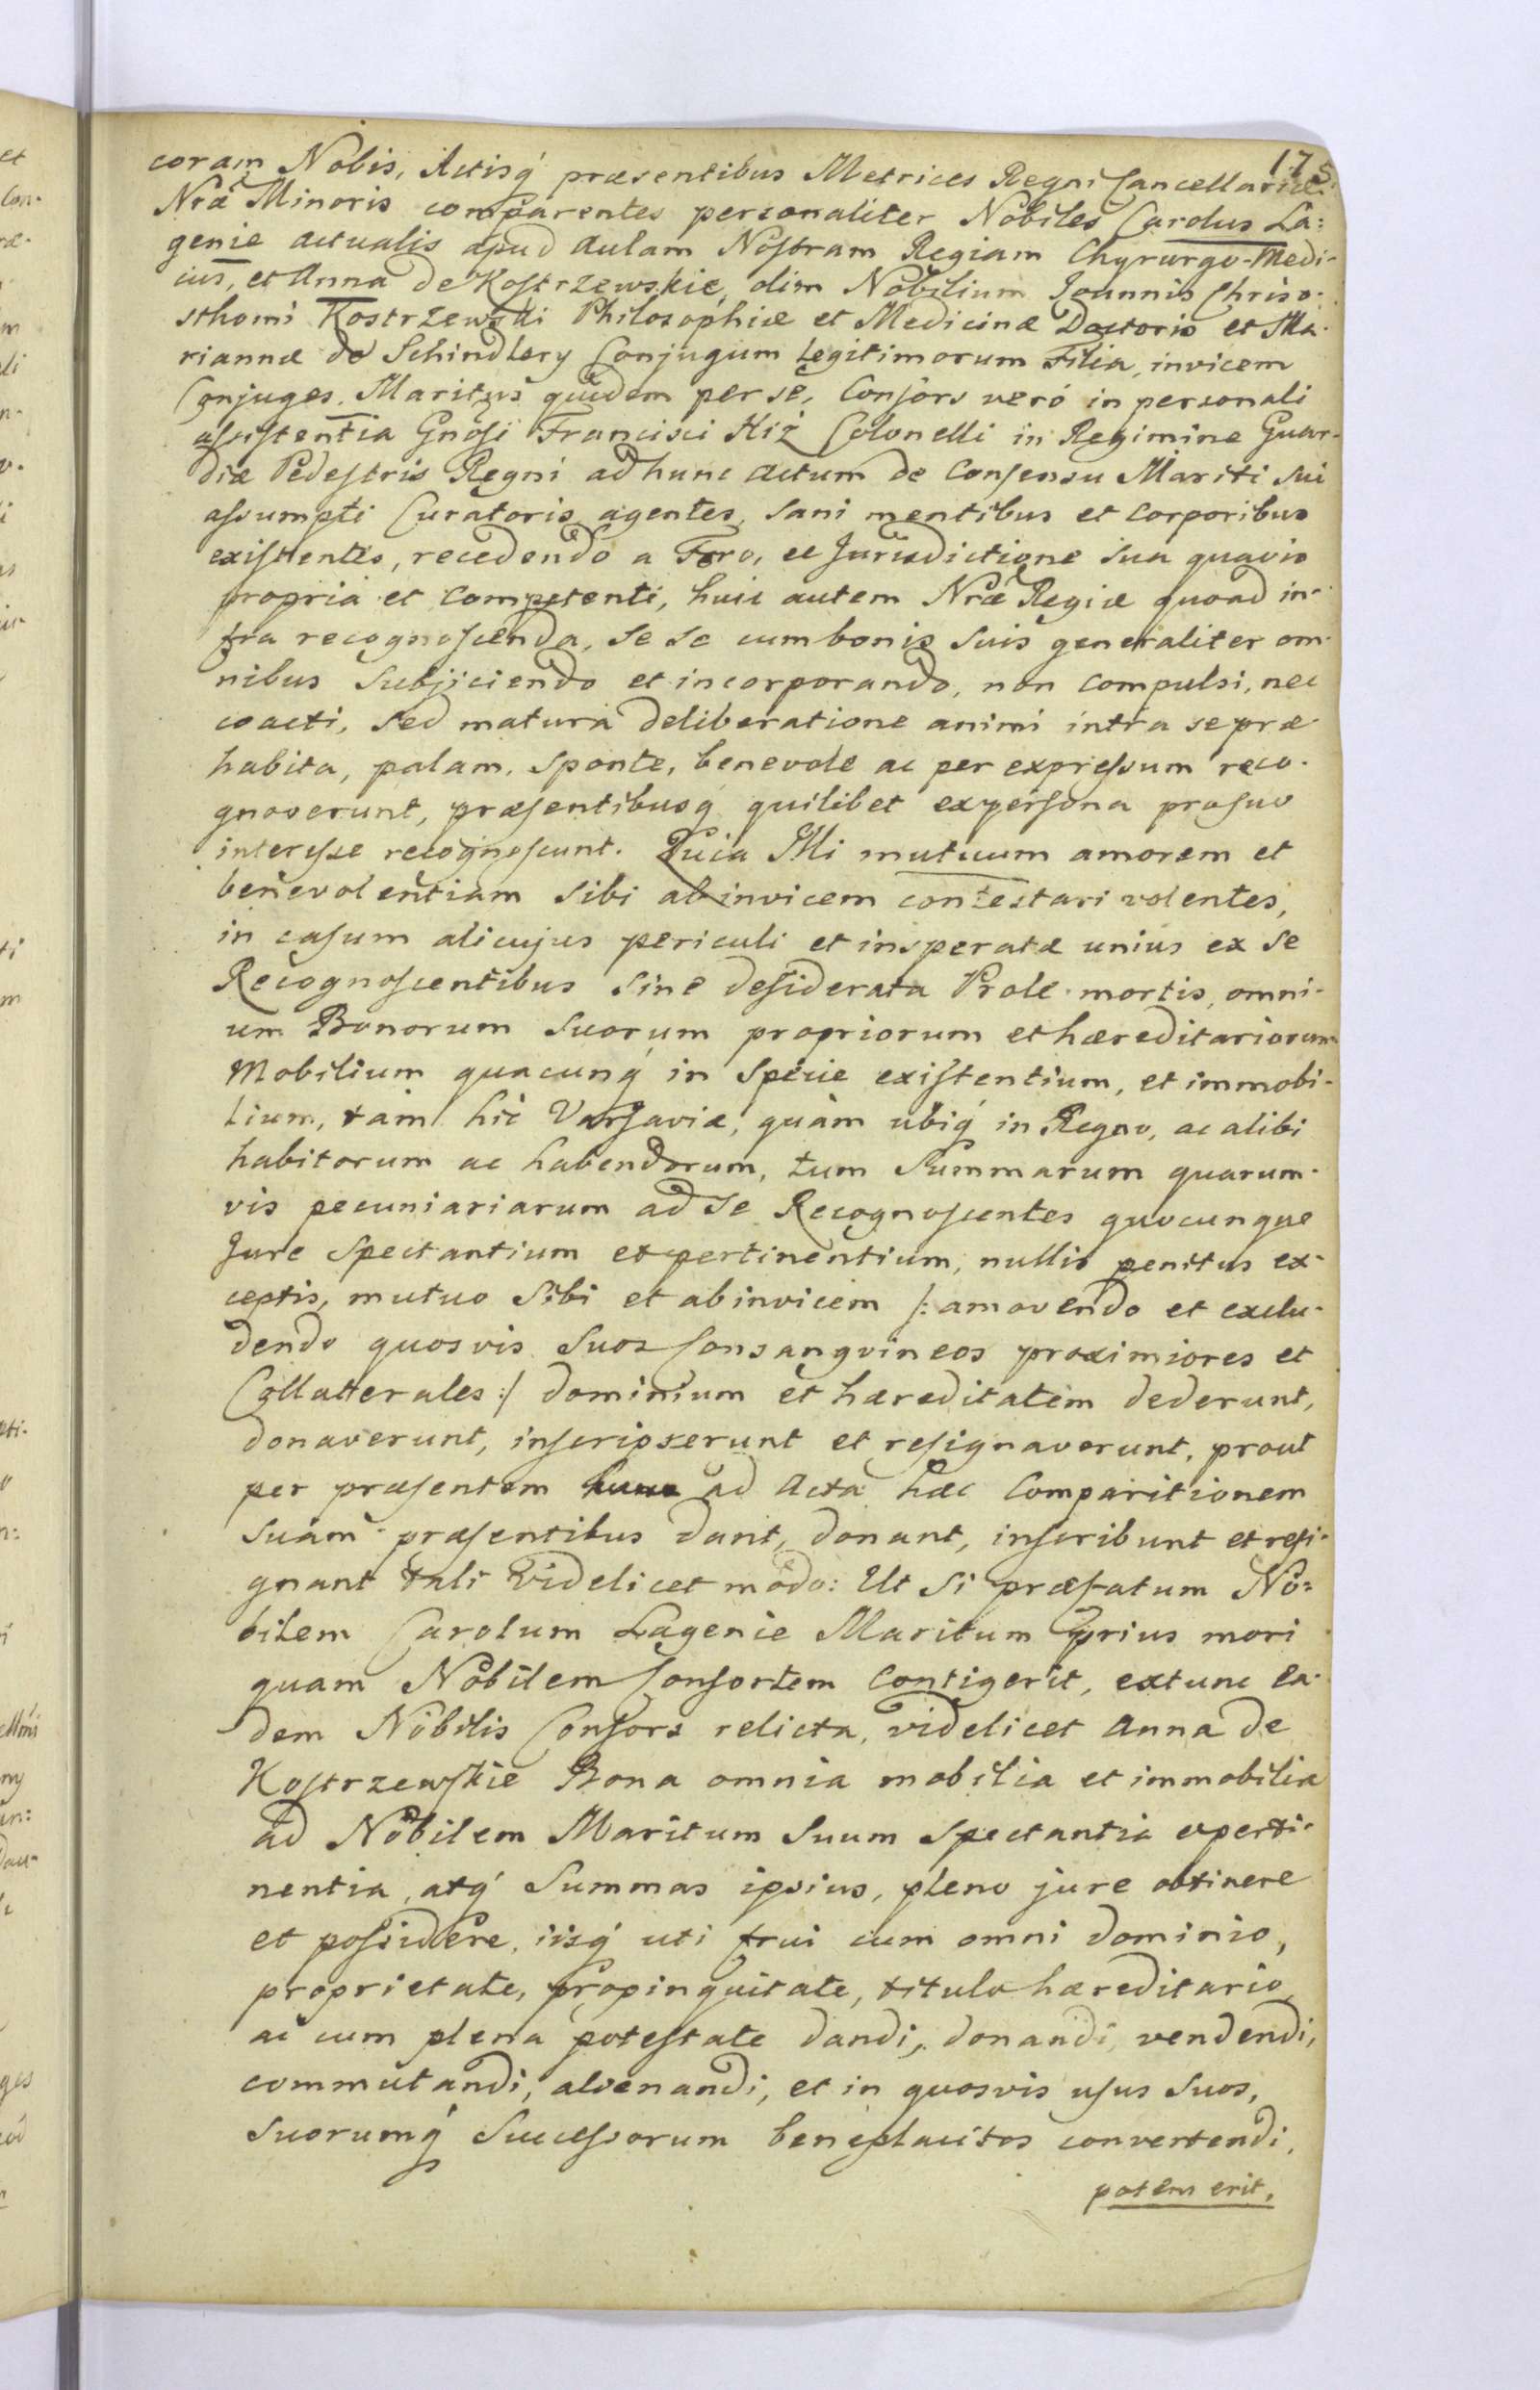 175
coram Nobis, Actisq́ præsentibus Metrices Regni Cancellariæ
Nræ Minoris comparentes personaliter Nobiles Carolus La:
genie actualis apud Aulam Nostram Regiam Chyrurgo-Medi-
cus, et Anna de Kostrzewskie, olim Nobilium Joannis Chriso-
sthomi Kostrzewski Philosophiæ et Medicinæ Doctoris et Ma-
riannæ de Schindlery Conjugum legitimorum Filia, invicem
Conjuges. Maritus quidem per se, Consors veró in personali
assistentia Gnosi Francisci Kiż Colonelli in Regimine Guar-
diæ Pedestris Regni ad hunc actum de Consensu Mariti sui
assumpti Curatoris agentes, sani mentibus et corporibus
existentes, recedendo a Foro, et Jurisdictione sua quavis
propria et competenti, huic autem Nræ Regiæ quoad in-
fra recognoscenda, se se cum bonis suis generaliter om-
nibus subjiciendo et incorporando, non compulsi, nec
coacti, sed matura deliberatione animi intra se præ
habita, palam, sponte, benevole ac per expressum reco-
gnoverunt, præsentibusq́ quilibet ex persona pro suo
interesse recognoscunt. Quia Illi mutuum amorem et
benevolentiam sibi ab invicem contestari volentes,
in casum alicujus periculi et insperatæ unius ex se
Recognoscentibus sine desiderata Prole mortis, omni-
um Bonorum suorum propriorum et hæreditariorum
Mobilium quacunq́ in specie existentium, et immobi-
lium, tàm hìc Varsaviæ, quàm ubiq́ in Regno, ac alibi
habitorum ac habendorum, tum Summarum quarum-
vis pecuniariarum ad se Recognoscentes quocunque
Jure spectantium et pertinentium, nullis penitus ex-
ceptis, mutuo sibi et ab invicem /: amovendo et exclu-
dendo quosvis suos Consangvineos proximiores et
Collatterales :/ dominium et hæreditatem dederunt,
donaverunt, inscripserunt et resignaverunt, prout
per præsentem ad Acta hæc Comparitionem
suam præsentibus dant, donant, inscribunt et resi-
gnant tali videlicet modo: Ut si præfatum No:
bilem Carolum Lagenie Maritum prius mori
quam Nobilem Consortem contigerit, extunc ea-
dem Nobilis Consors relicta, videlicet Anna de
Kostrzewskie Bona omnia mobilia et immobilia
ad Nobilem Maritum suum spectantia et perti-
nentia, atq́ Summas ipsius, pleno jure obtinere
et possidere, iisq́ uti frui cum omni dominio,
proprietate, propinquitate, titulo hæreditario
ac cum plena potestate dandi, donandi, vendendi,
commutandi, alienandi, et in quosvis usus suos,
suorumq́ Successorum beneplacitos convertendi,
potens erit,